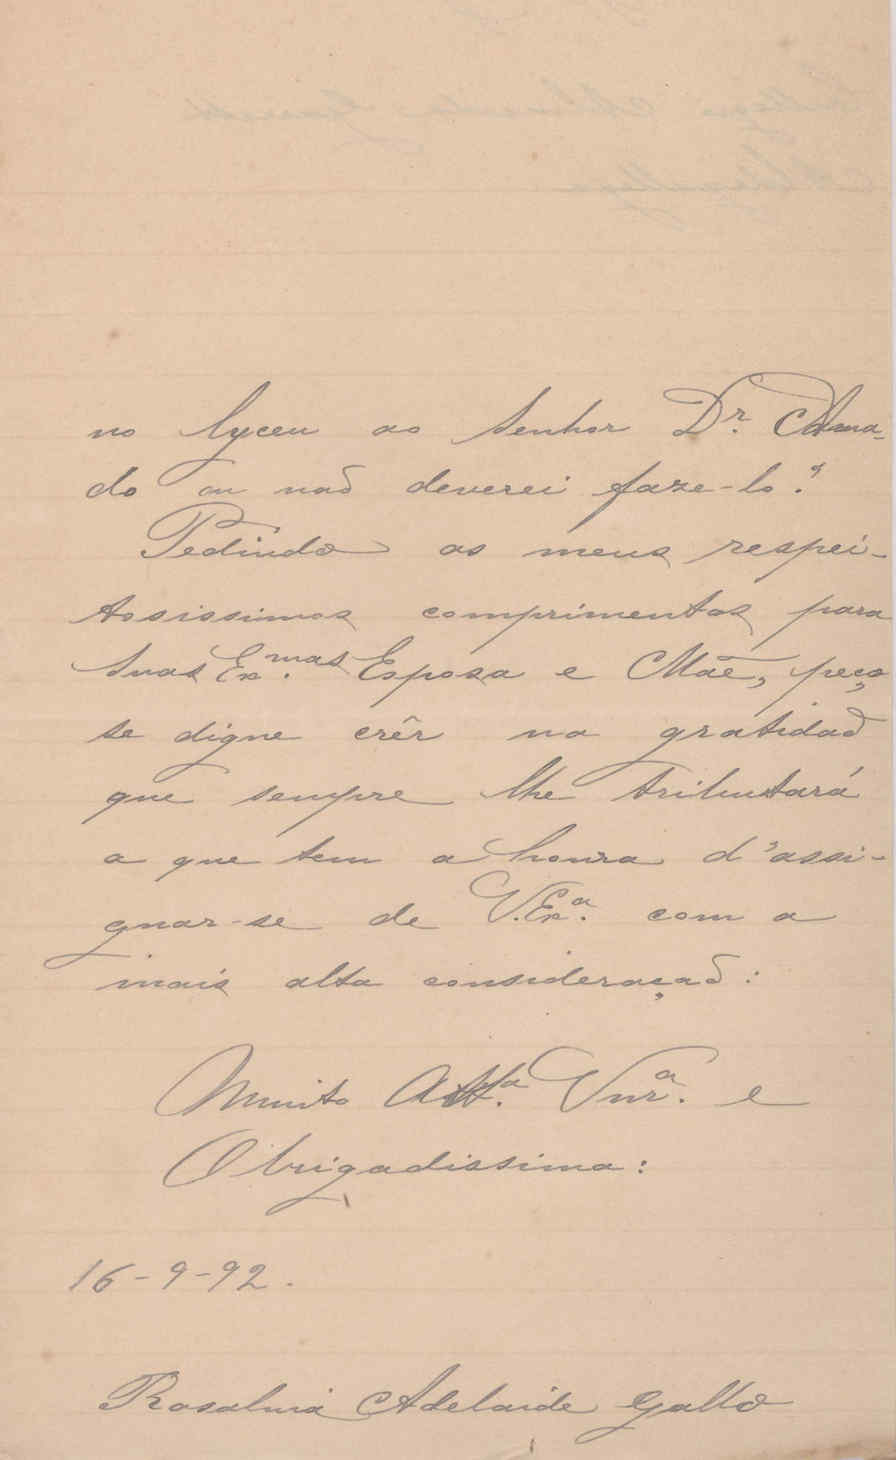 no lyceu ao Senhor Dr. Ama-
do ou naõ deverei faze-lo?
Pedindo os meus respei-
tosissimos comprimentos para
Suas Ex.mas Esposa e Mãe, peço
se digne crêr na gratidaõ
que sempre lhe tributará
a que tem a honra d'assi-
gnar-se de V. Ex.a com a
mais alta consideraçaõ:
Muito Att.a Vnr.a e
Obrigadissima:
16-9-92.
Rosalina Adelaide Gallo